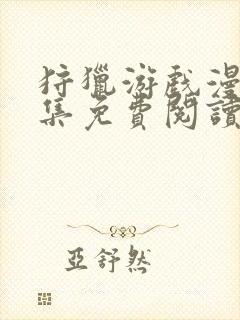 狩獵游戲漫
集免費閱讀
亞舒然